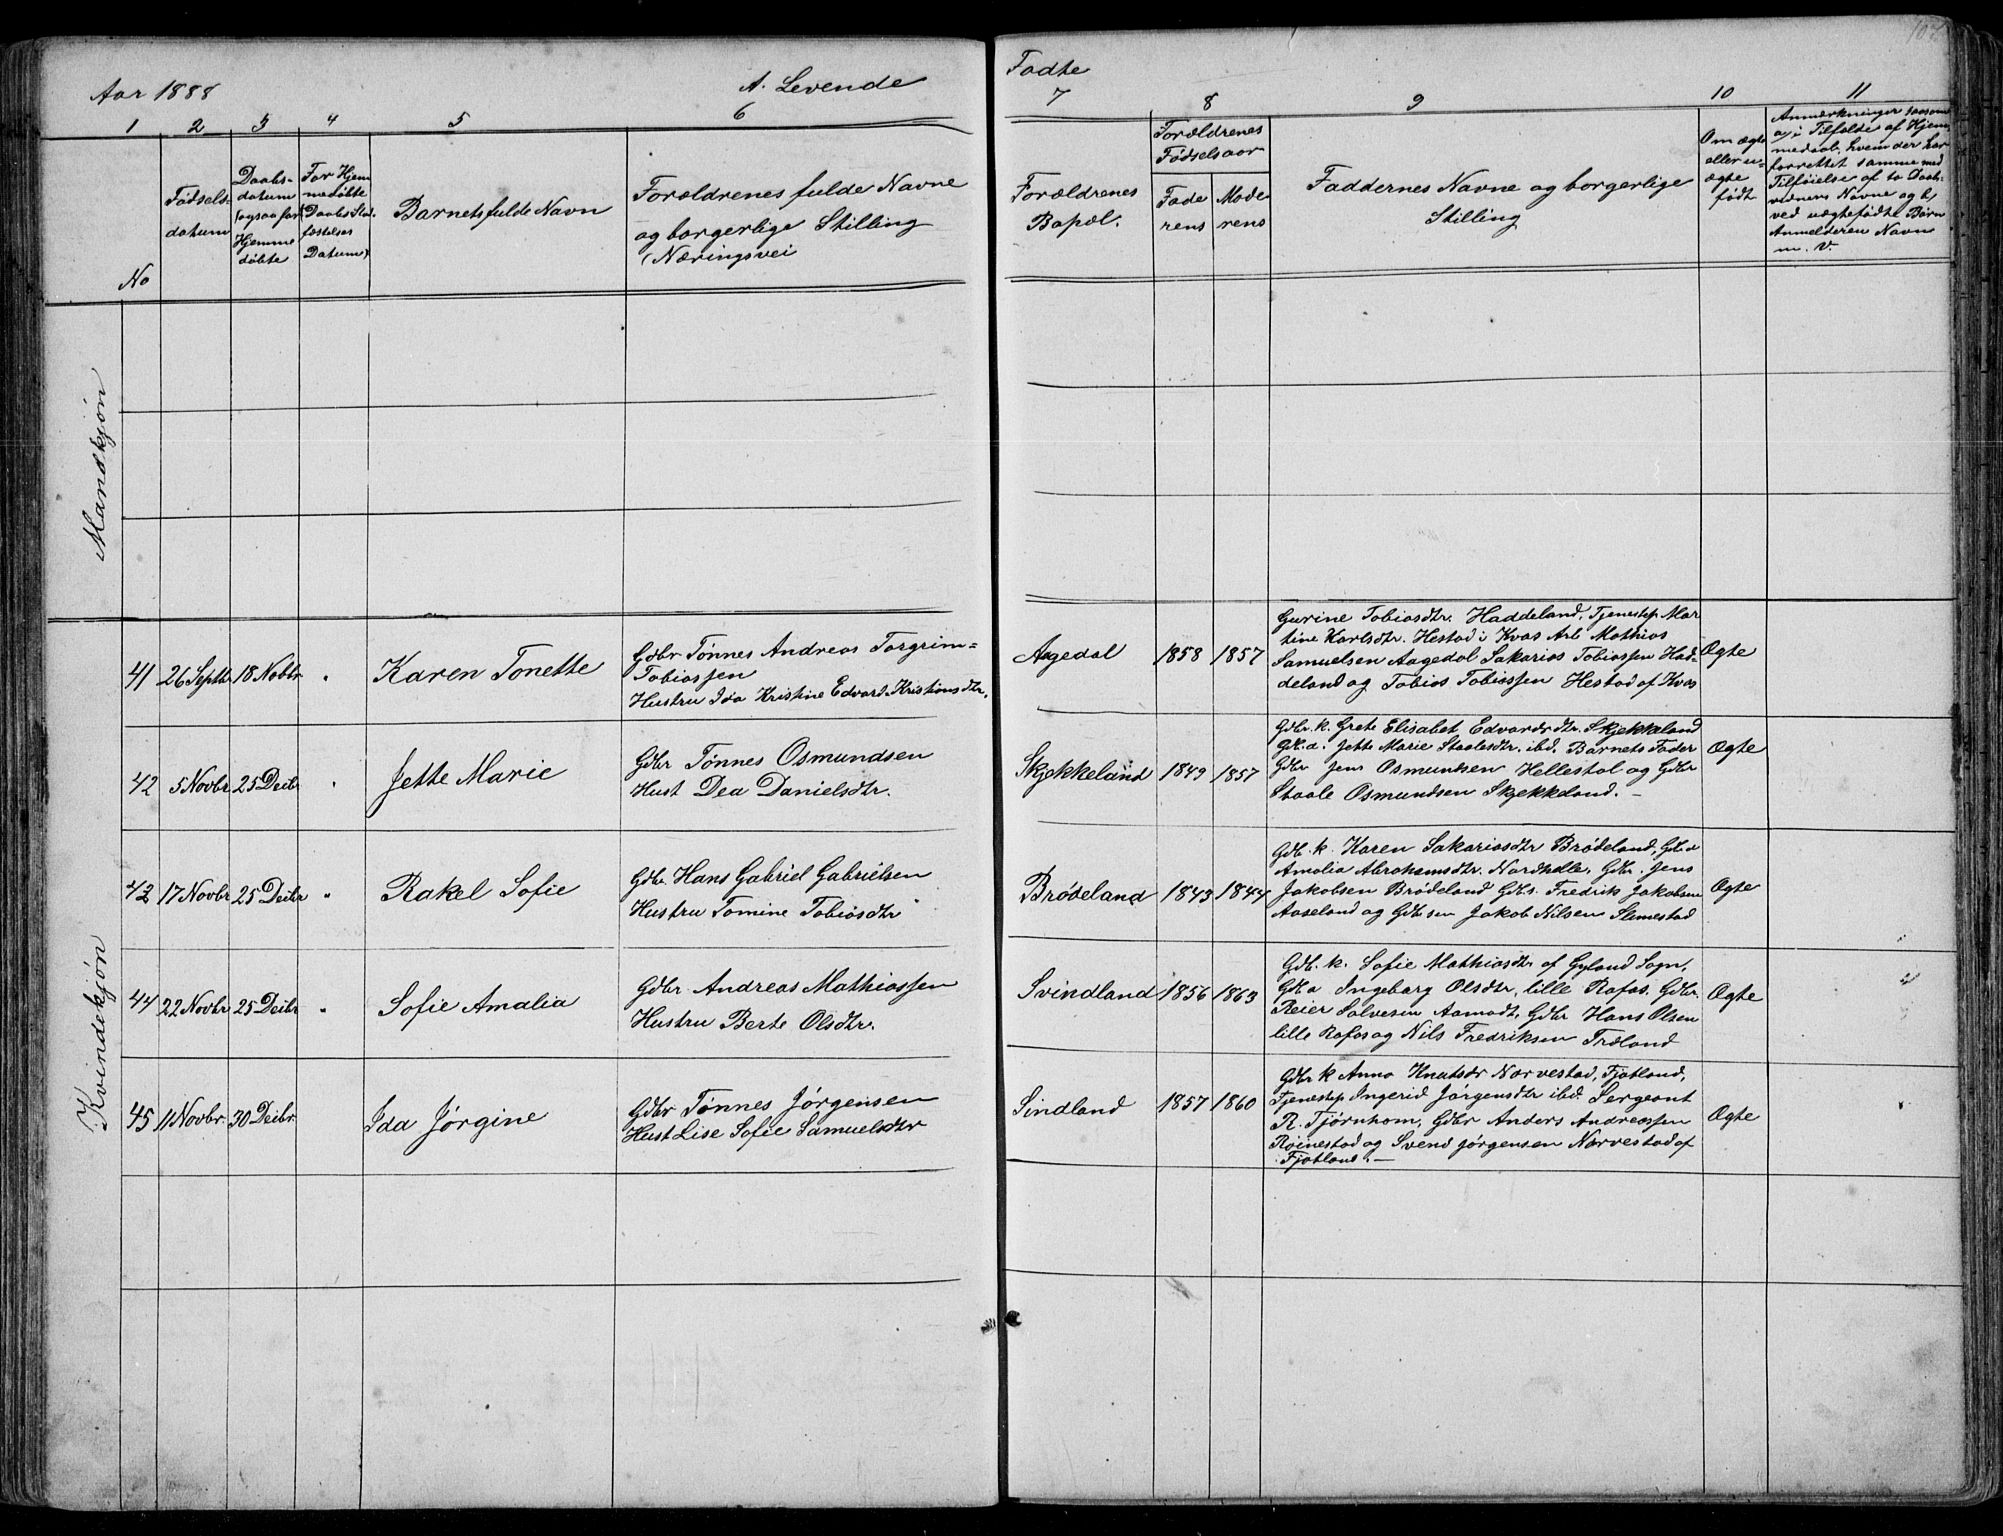 Aar 1888
A. Levende
Fødte
107
1 2 3 4 5 6
7 8 9 10 11
No
Fødsels-
datum
Daabs-
datum
(ogsaa for
Hjemme
døbte
For Hjem
medøbte
Daabs Sta-
fæstelses
Datum)
Barnets fulde Navn
Forældrenes fulde Navne
og borgerlige Stilling
(Næringsvei
Forældrenes
Bopæl.
Forældrenes
Fødselsaar
Fade
rens
Mode
rens
Faddernes Navne og borgerlige
Stilling
Om ægte
eller u-
ægte
født
Anmærkninger saasom
a) i Tilfælde af Hjem
medaab, hvem der har
forrettet samme med
Tilføielse af to Daab-
vidners Navne og b)
ved uægtefødte Børn
Anmelderen Navn
m. v.
Mandkjøn
Kvindekjøn
41 26 Septb 18 Novbr " Karen Tonette
Gdbr Tønnes Andreas Torgrim=
Tobiassen
Hustru Ida Kristine Edvard Kristiansdtr.
Aagedal 1858 1857
Gurine Tobiasdtr. Haddeland, Tjenestep. Mar
tine Karlsdtr. Hestad i Kvas Arb Mathias
Samuelsen Aagedal Sakarias Tobiassen Had-
deland og Tobias Tobiassen Hestad af Kvas
Ægte
42 5 Novbr 25 Decbr " Jette Marie
Gdbr Tønnes Osmundsen
Hust Dea Danielsdtr.
Skjekkeland 1849 1857
Gdbr. k. Grete Elisabet Edvardsdtr. Skjekkeland
Gk. a. Jette Marie Staalesdtr. ibd. Barnets Fader
Gdbr Jens Osmundsen Hellestøl og Gdbr
Staale Osmundsen Skjekkeland. -
Ægte
43 17 Novbr 25 Decbr " Rakel Sofie
Gdbr. Hans Gabriel Gabrielsen
Hustru Tomine Tobiasdtr
Brødeland 1843 1844
Gdb. k. Karen Sakariasdtr Brødeland, Gk. a
Amalia Abrahamsdtr. Nordhelle, Gdbr. Jens
Jakobsen Brødeland Gdbs. Fredrik Jakobsen
Aaseland og Gdbr sen Jakob Nilsen Slimestad
Ægte
44 22 Novbr 25 Decbr " Sofie Amalia
Gdbr Andreas Mathiassen
Hustru Berte Olsdtr.
Svindland 1856 1863
Gdb. k. Sofie Mathiasdtr af Gyland Sogn,
Gk. a Ingeborg Olsdtr, lille Rafos. Gdbr.
Reier Salvesen Aamodt, Gdbr Hans Olsen
lille Rafos og Nils Fredriksen Træland
Ægte
45 11 Novbr. 30 Decbr. Ida Jørgine
Gdbr Tønnes Jørgensen
Hust Lise Sofie Samuelsdtr
Sindland 1857 1860
Gdbr k Anna Knutsdr Narvestad, Fjotland,
Tjenestep Ingerid Jørgensdtr ibd. Sergeant
R. Tjørnhom, Gdbr Anders Andreassen
Røinestad og Svend Jørgensen Narvestad af
Fjotland. -
Ægte